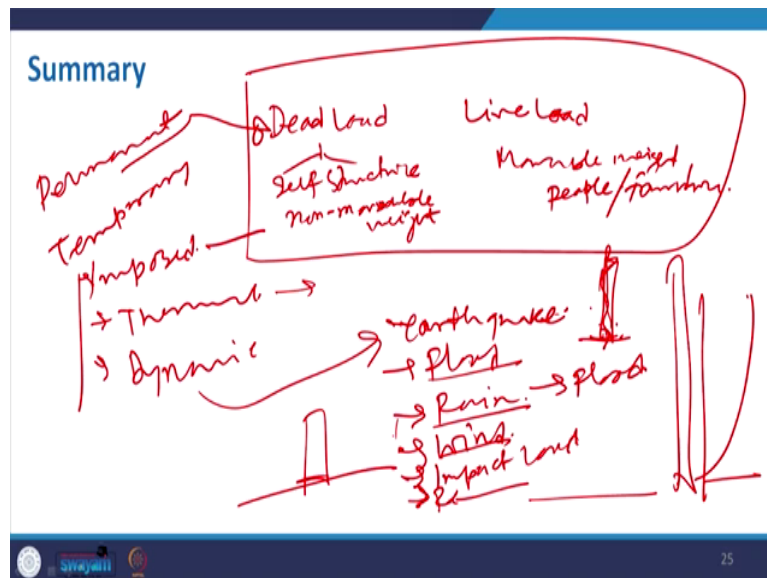 Summary
Permanent
Temporary
Imposed
→ Thermal →
→ Dynamic
Dead Load
Self Structure
non-moveable
weight
Live Load
Moveable weight
people/
→ earthquake
→ Flood
→ Rain → Flood
→ Wind
→ Impact Load
swayam
25